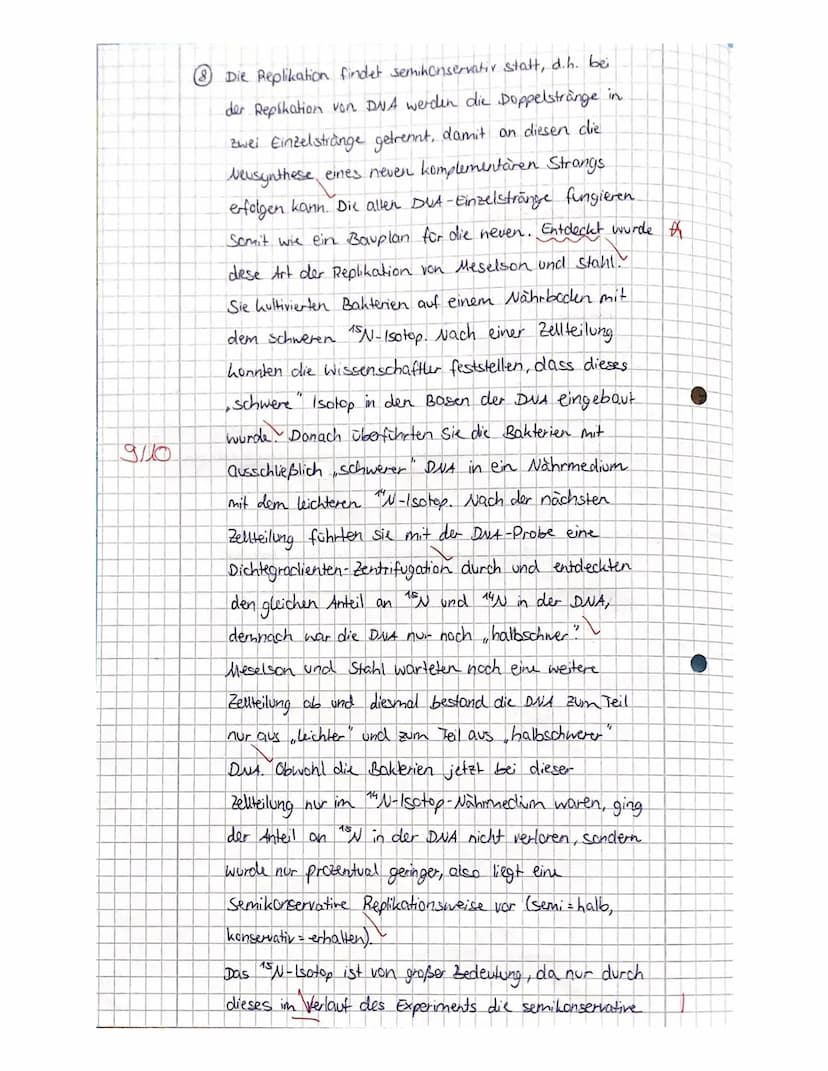 ⑧ Die Replikation findet semikonservativ statt, d.h. bei
der Replikation von DNA werden die Doppelstränge in
zwei Einzelstränge getrennt, damit an diesen die
Neusynthese eines neuen komplementären Strangs
erfolgen kann. Die alten DNA-Einzelstränge fungieren
somit wie ein Bauplan für die neuen. Entdeckt wurde A
dese Art der Replikation von Meselson und Stahl.
Sie kultivierten Bakterien auf einem Nährboden mit
dem schweren ¹⁵N-Isotop. Nach einer Zellteilung
konnten die Wissenschaftler feststellen, dass dieses
„schwere" Isotop in den Basen der DNA eingebaut
wurde. Danach überführten Sie die Bakterien mit
9/10
ausschließlich „schwerer" DNA in ein Nährmedium
mit dem leichteren ¹⁴N-Isotop. Nach der nächsten
Zellteilung führten sie mit der DNA-Probe eine
Dichtegradienten-Zentrifugation durch und entdeckten
den gleichen Anteil an ¹⁵N und ¹⁴N in der DNA,
demnach war die DNA nur noch „halbschwer".
Meselson und Stahl warteten noch eine weitere
Zellteilung ab und diesmal bestand die DNA zum Teil
nur aus „leichter" und zum Teil aus „halbschwerer"
DNA. Obwohl die Bakterien jetzt bei dieser
Zellteilung nur im ¹⁴N-Isotop-Nährmedium waren, ging
der Anteil an ¹⁵N in der DNA nicht verloren, sondern
wurde nur prozentual geringer, also liegt eine
semikonservative Replikationsweise vor (semi=halb,
konservativ=erhalten).
Das ¹⁵N-Isotop ist von großer Bedeutung, da nur durch
dieses im Verlauf des Experiments die semikonservative